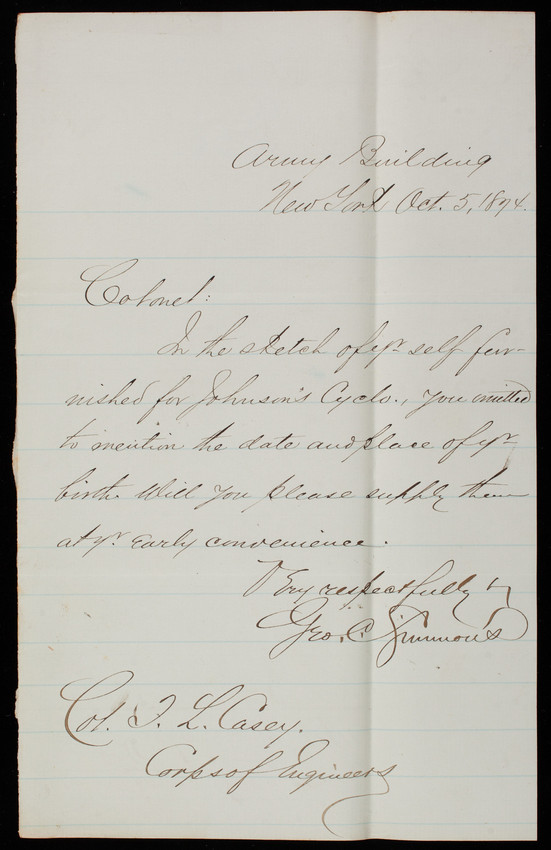 Army Building
New York Oct. 5, 1874.
Colonel:
In the sketch of yr self fur-
nished for Johnson's Cyclo., you omitted
to mention the date and place of yr
birth. Will you please supply them
at yr early convenience.
Very respectfully
Geo. C. Simmons
Col. T. L. Casey.
Corps of Engineers